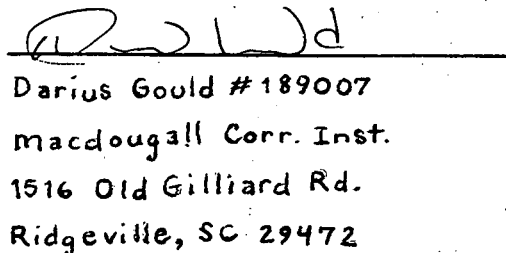 Darius Gould #189007
macdougall Corr. Inst.
1516 Old Gilliard Rd.
Ridgeville, SC 29472